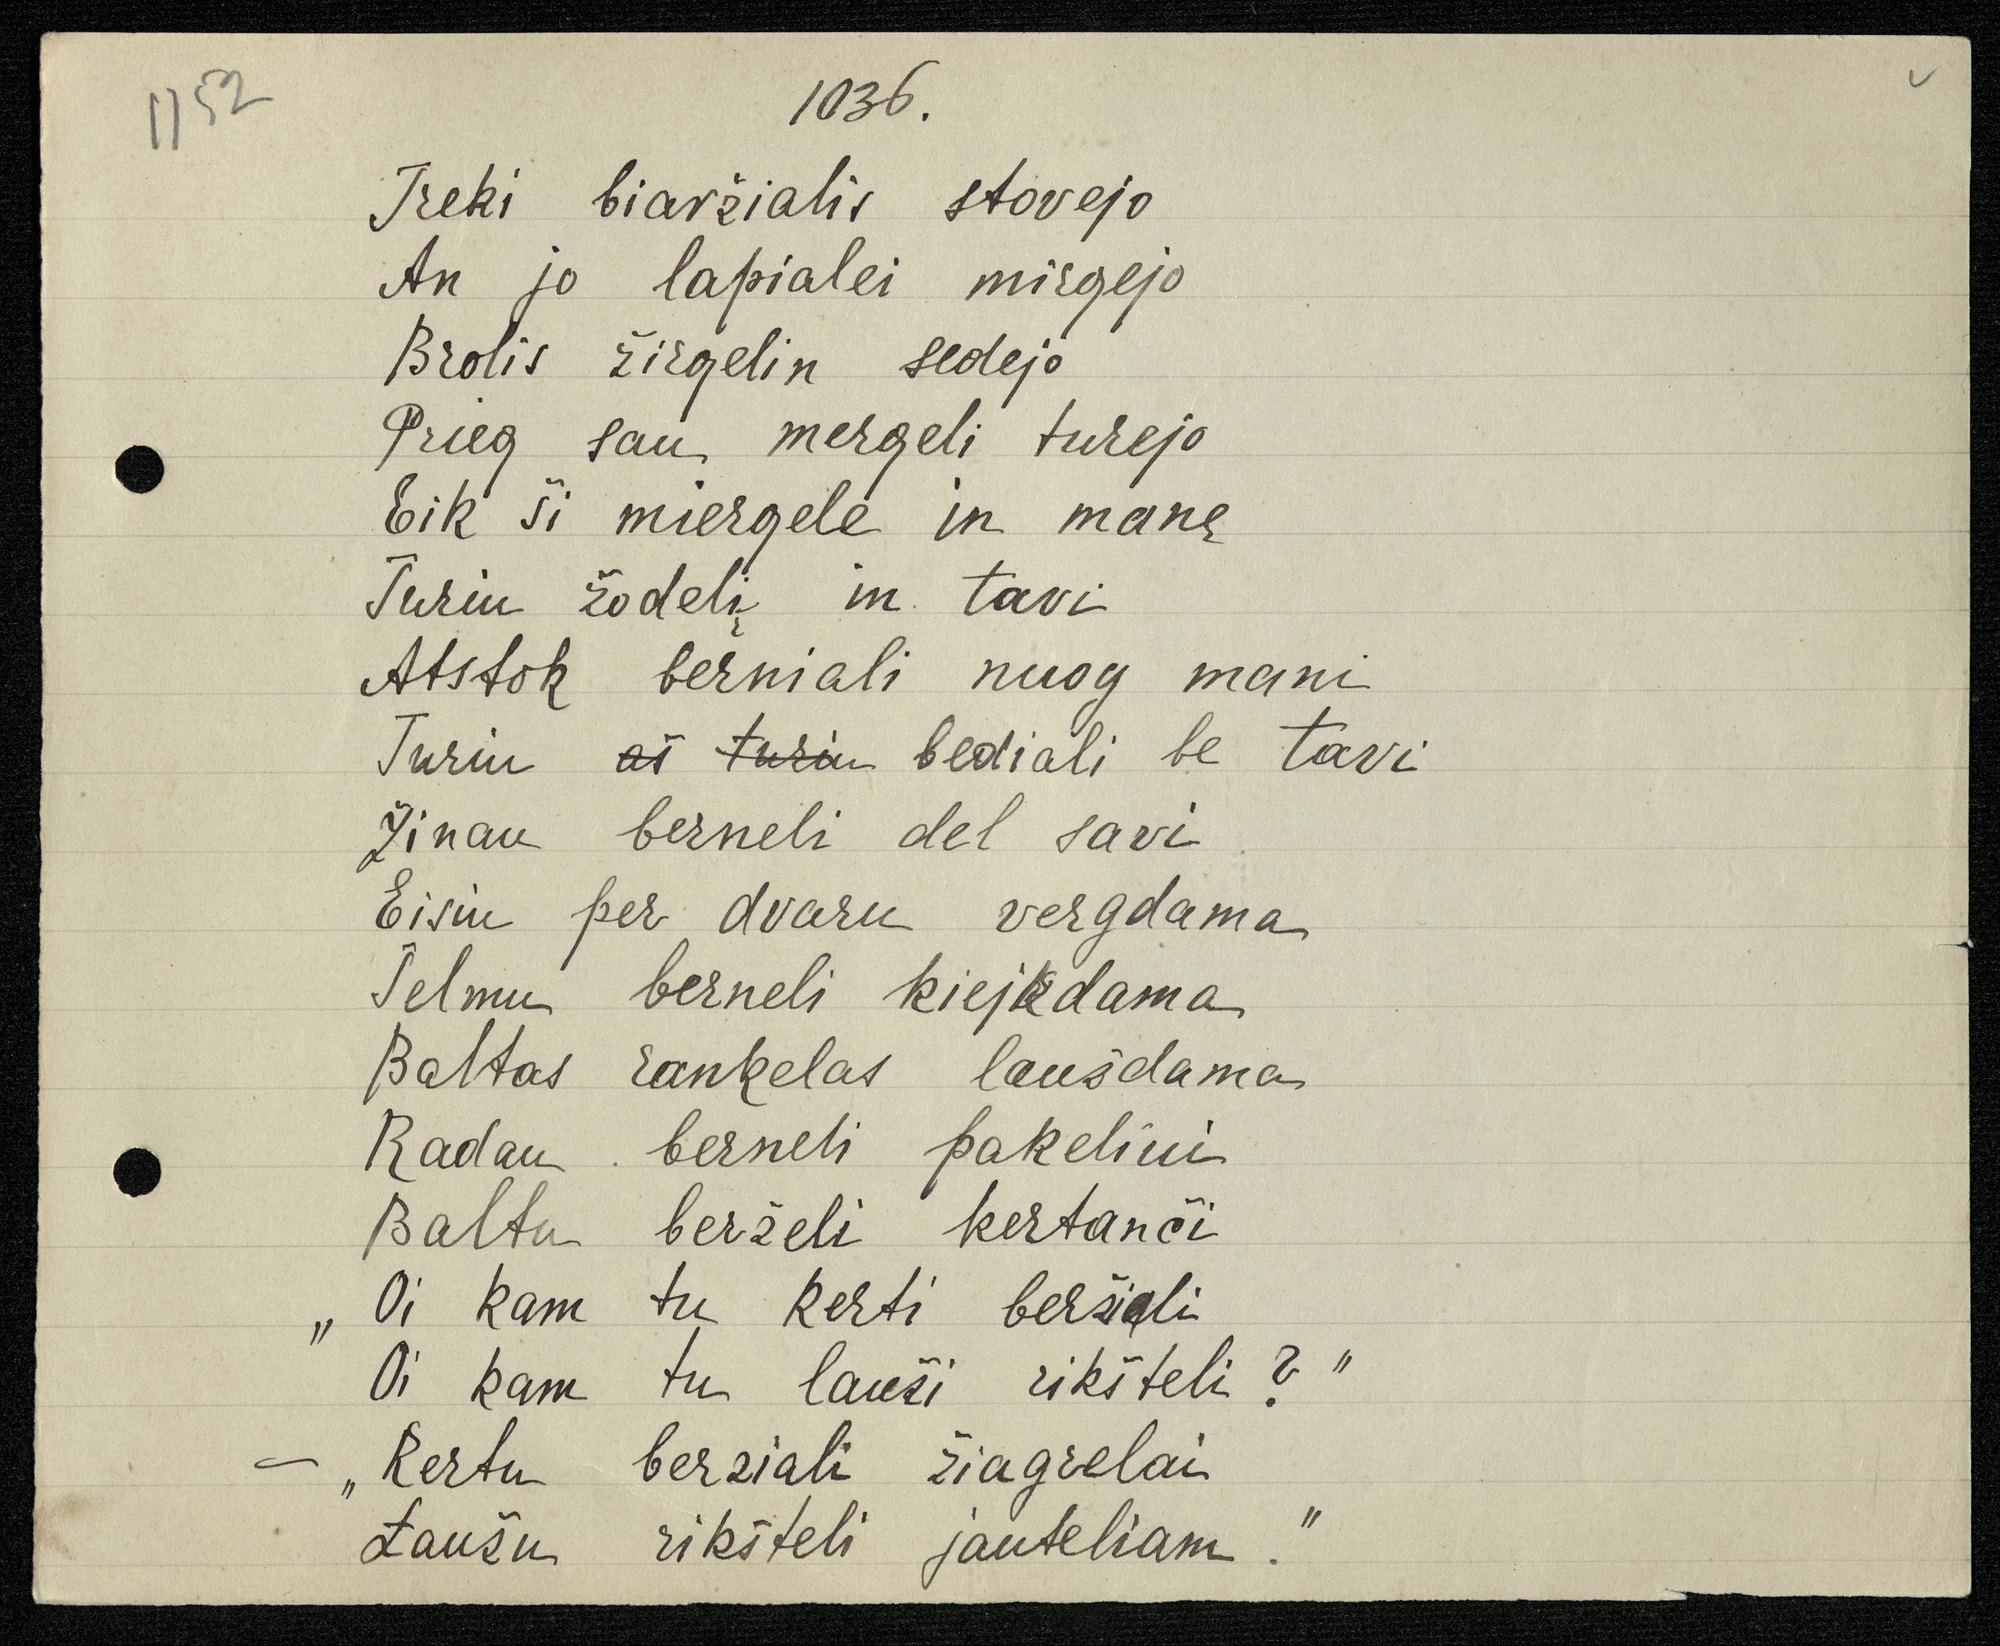 1152
1036.
Treki biaržialis stovejo
An jo lapialei mirgejo
Brolis žirgelin sedejo
Prieg sau mergeli turejo
Eik ši miergele in manę
Turiu žodelį in tavi
Atstok berniali nuog mani
Turiu aš turiu bediali be tavi
Žinau berneli del savi
Eisiu per dvaru vergdama
Telmu berneli kiejkdama
Baltas rankelas laušdama
Radau berneli pakeliui
Baltu berželi kertanči
„Oi kam tu kerti beržiali
Oi kam tu lauži rikšteli?"
— „Kertu berziali žiagrelai
Laužu rikšteli jauteliam."